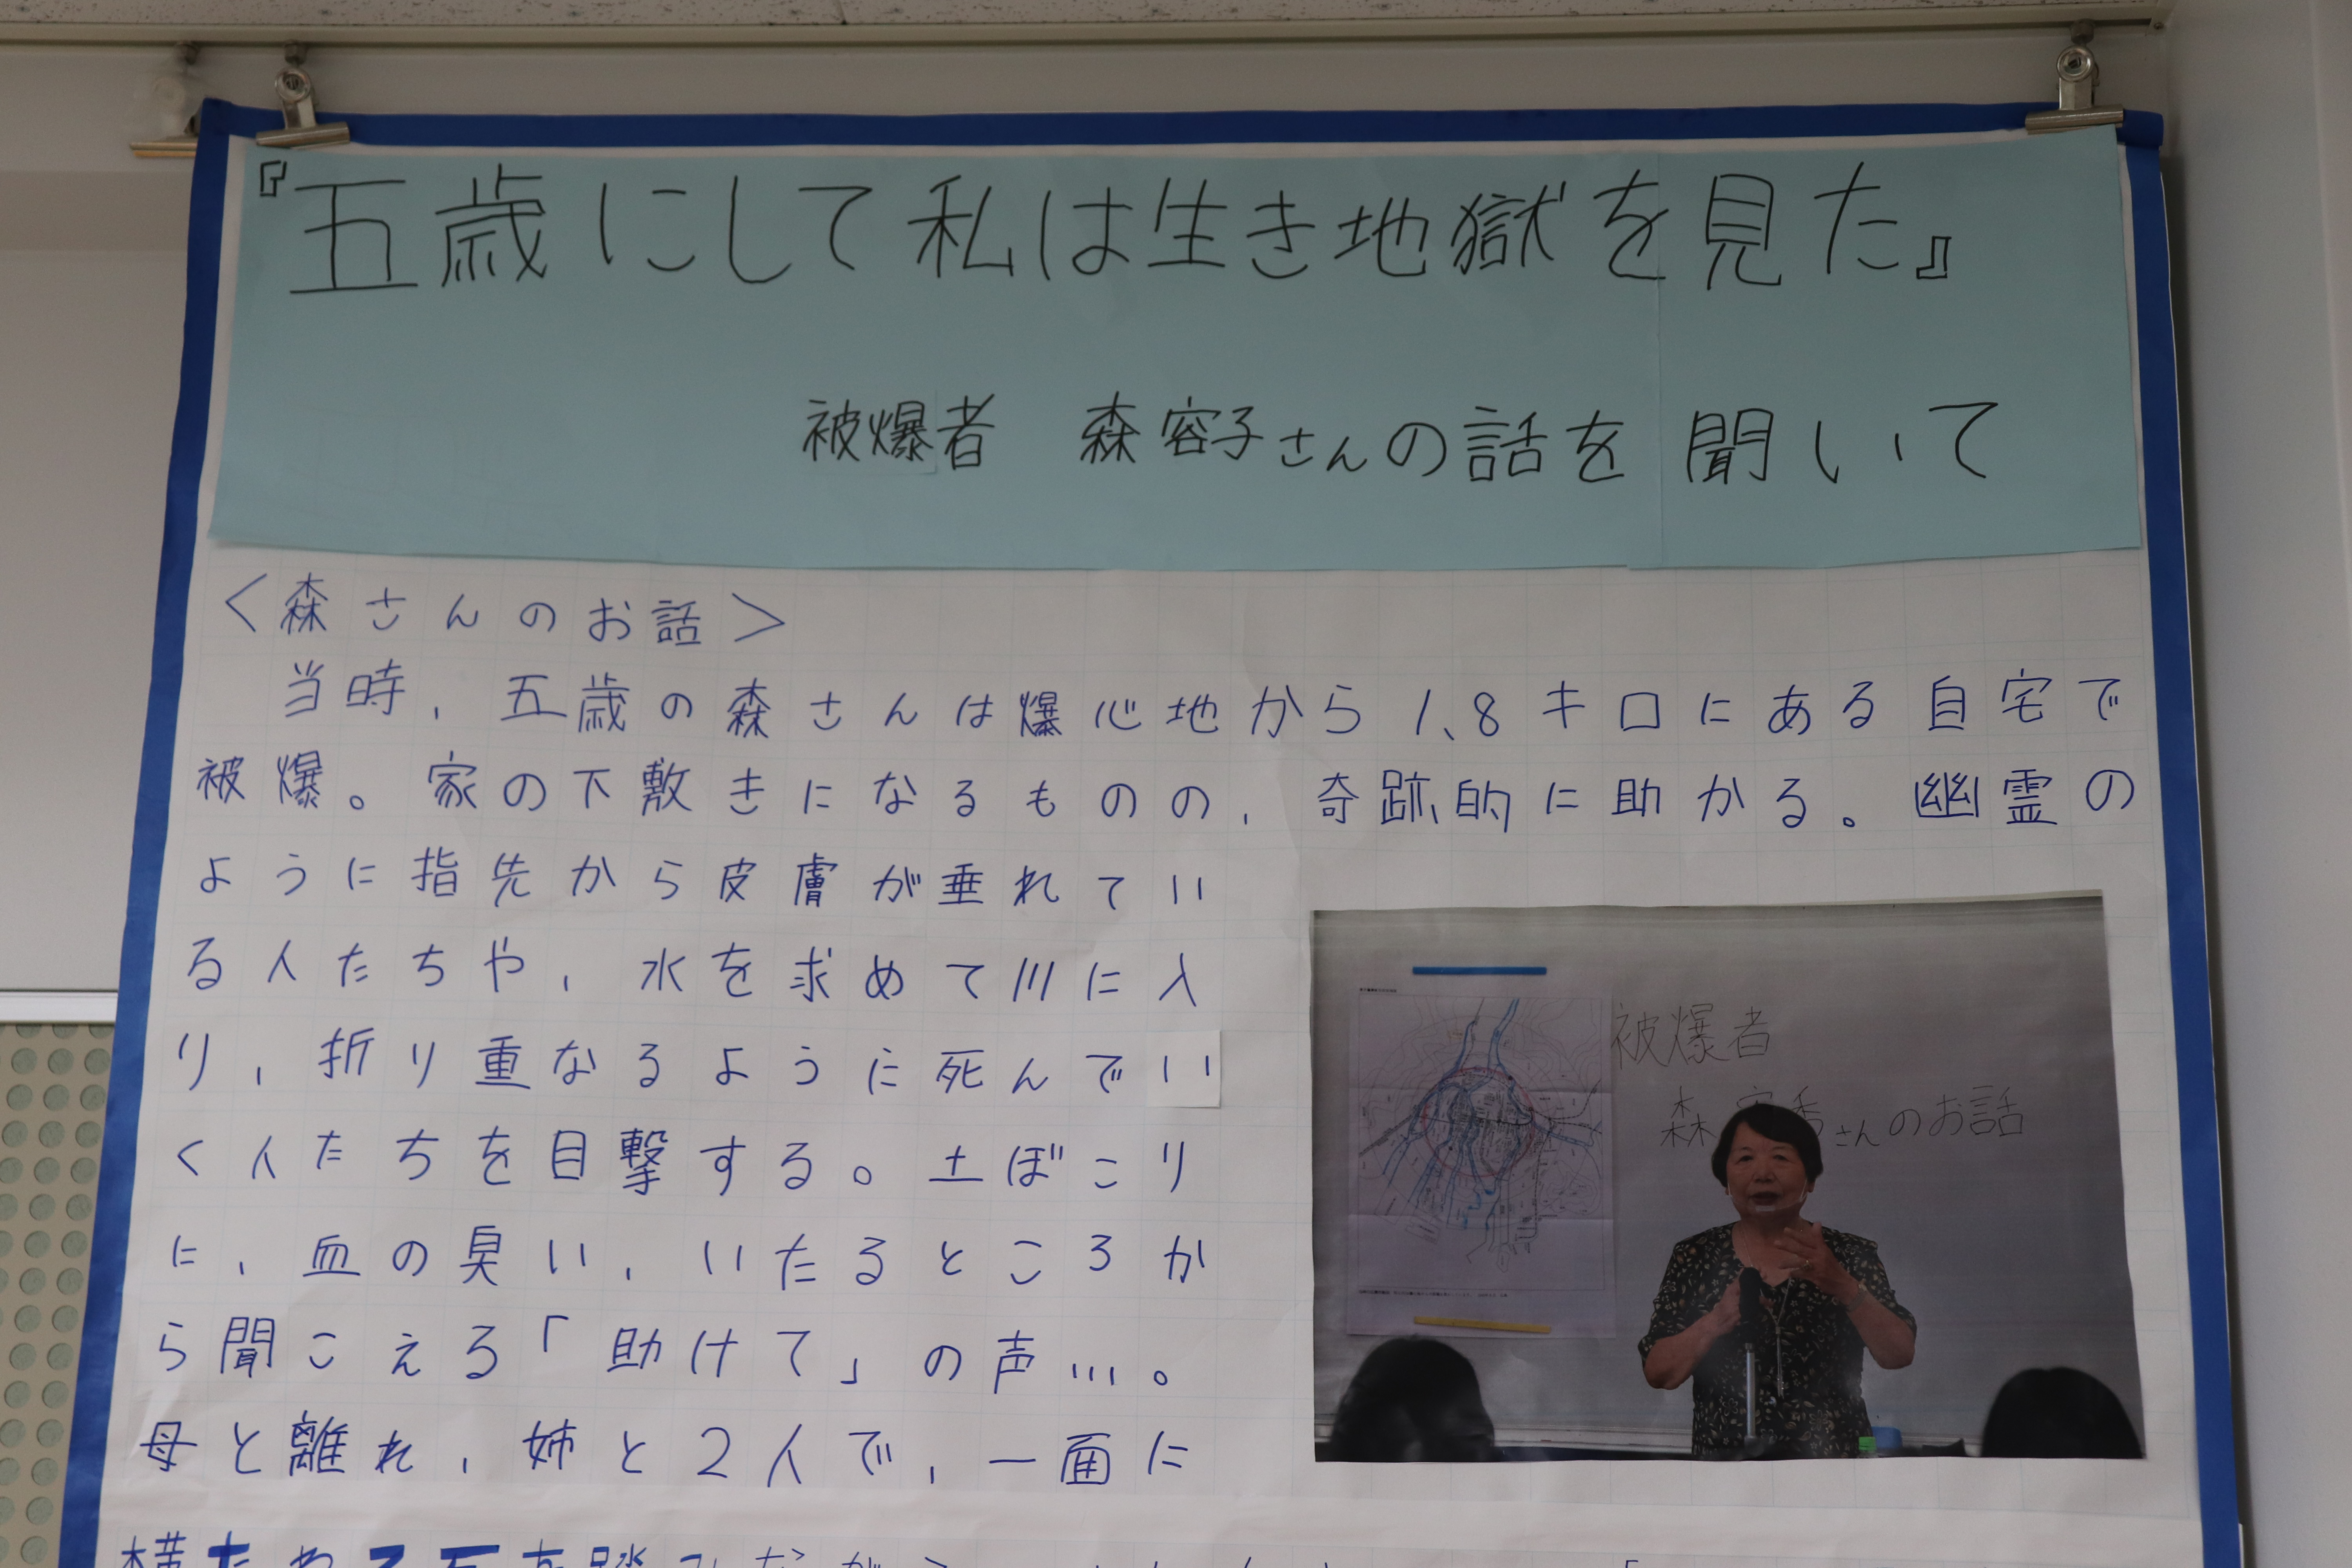 『五歳にして私は生き地獄を見た』
被爆者 森容子さんの話を聞いて
＜森さんのお話＞
当時，五歳の森さんは爆心地から1.8キロにある自宅で
被爆。家の下敷きになるものの，奇跡的に助かる。幽霊の
ように指先から皮膚が垂れてい
る人たちや，水を求めて川に入
り，折り重なるように死んでい
く人たちを目撃する。土ぼこり
に，血の臭い，いたるところか
ら聞こえる「助けて」の声…。
母と離れ，姉と2人で，一面に
被爆者
森 さんのお話